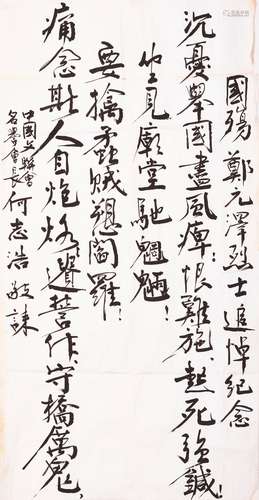 國殤鄭元澤烈士追悼紀念
沉憂舉國盡風痺！恨難施、起死強鍼！
坐見廟堂馳魍魎！
要擒蟊賊愬閻羅！
痛念斯人自炮烙遺誓作、守橋厲鬼！
中國文聯會
名譽會長何志浩敬誄